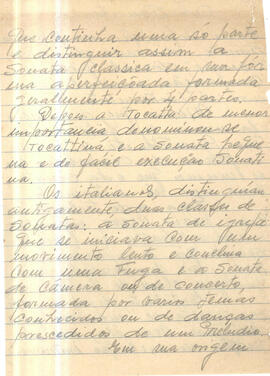 que continha uma só parte
e distinguir assim a
Sonata classica em sua for
ma aperfeiçoada formada
geralmente por 4 partes.
Depois a Tocatta de menor
importancia denominou-se
Tocattina e a Sonata peque
na e de facil execução Sonati
na.
Os italianos, distinguiam
antigamente, duas classes de
Sonatas: a Sonata de igreja
que se iniciava com um
movimento lento e continha
com uma Fuga e a Sonata
de Câmera ou de concerto,
formada por varios temas
conhecidos ou de danças
prescedidos de um Preludio.
Em sua origem